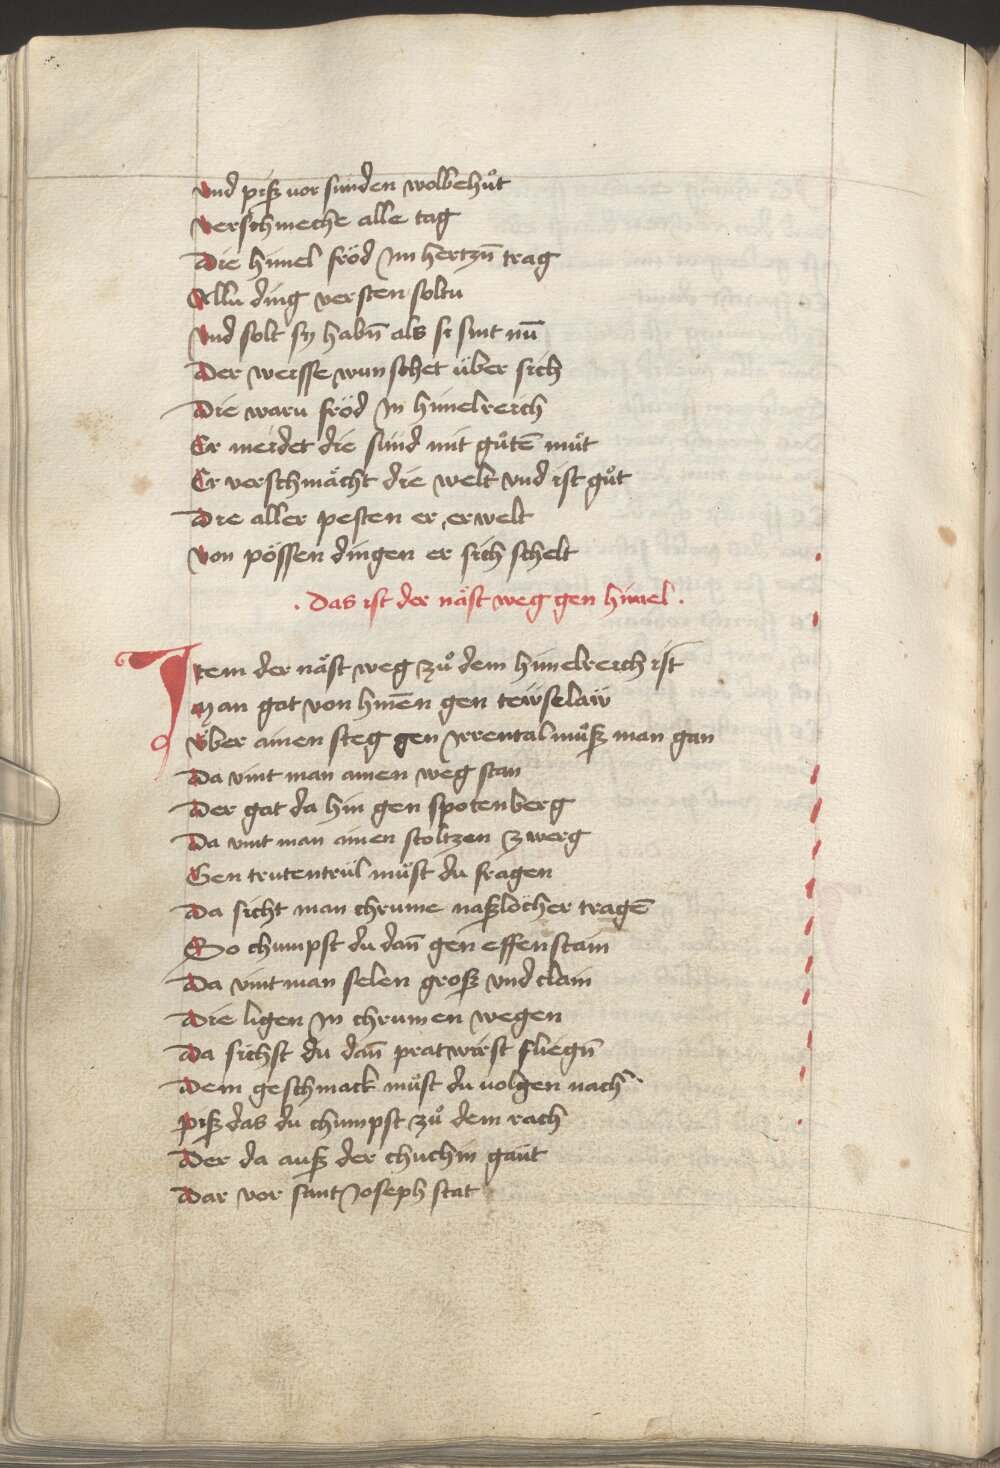 vnd piß vor sünden wolbehůt
verschmeche alle tag
die himel fröd Im hertzn̄ trag
Allu ding versten soltu
vnd solt sy habn̄ als si sint nū
der weisse wunschet über sich
die waru fröd In himelreich
Er meidet die sünd mit gůtē můt
Er verschmächt die welt vnd ist gůt
die aller pesten er erwelt
von pössen dingen er sich schelt
. das ist der näst weg gen himel .
Item der näst weg zů dem himelreich ist
man gat von hinēn gen tewselaw
Vber ainen steg gen Irrental můß man gan
da vint man ainen weg stan
der gat da hin gen spotenberg
da vint man ainen stoltzen zwerg
Gen trutentrül můst du fragen
da sicht man chrume naßlöcher tragē
So chumpst du dan̄ gen effenstain
da vint man selen groß vnd clain
die ligen In chrumen wegen
da sichst du dan̄ pratwirst fliegn̄
dem geschmack můst du volgen nach
piß das du chumpst zů dem rach
der da auß der chuchin gaut
dar vor sant Joseph stat